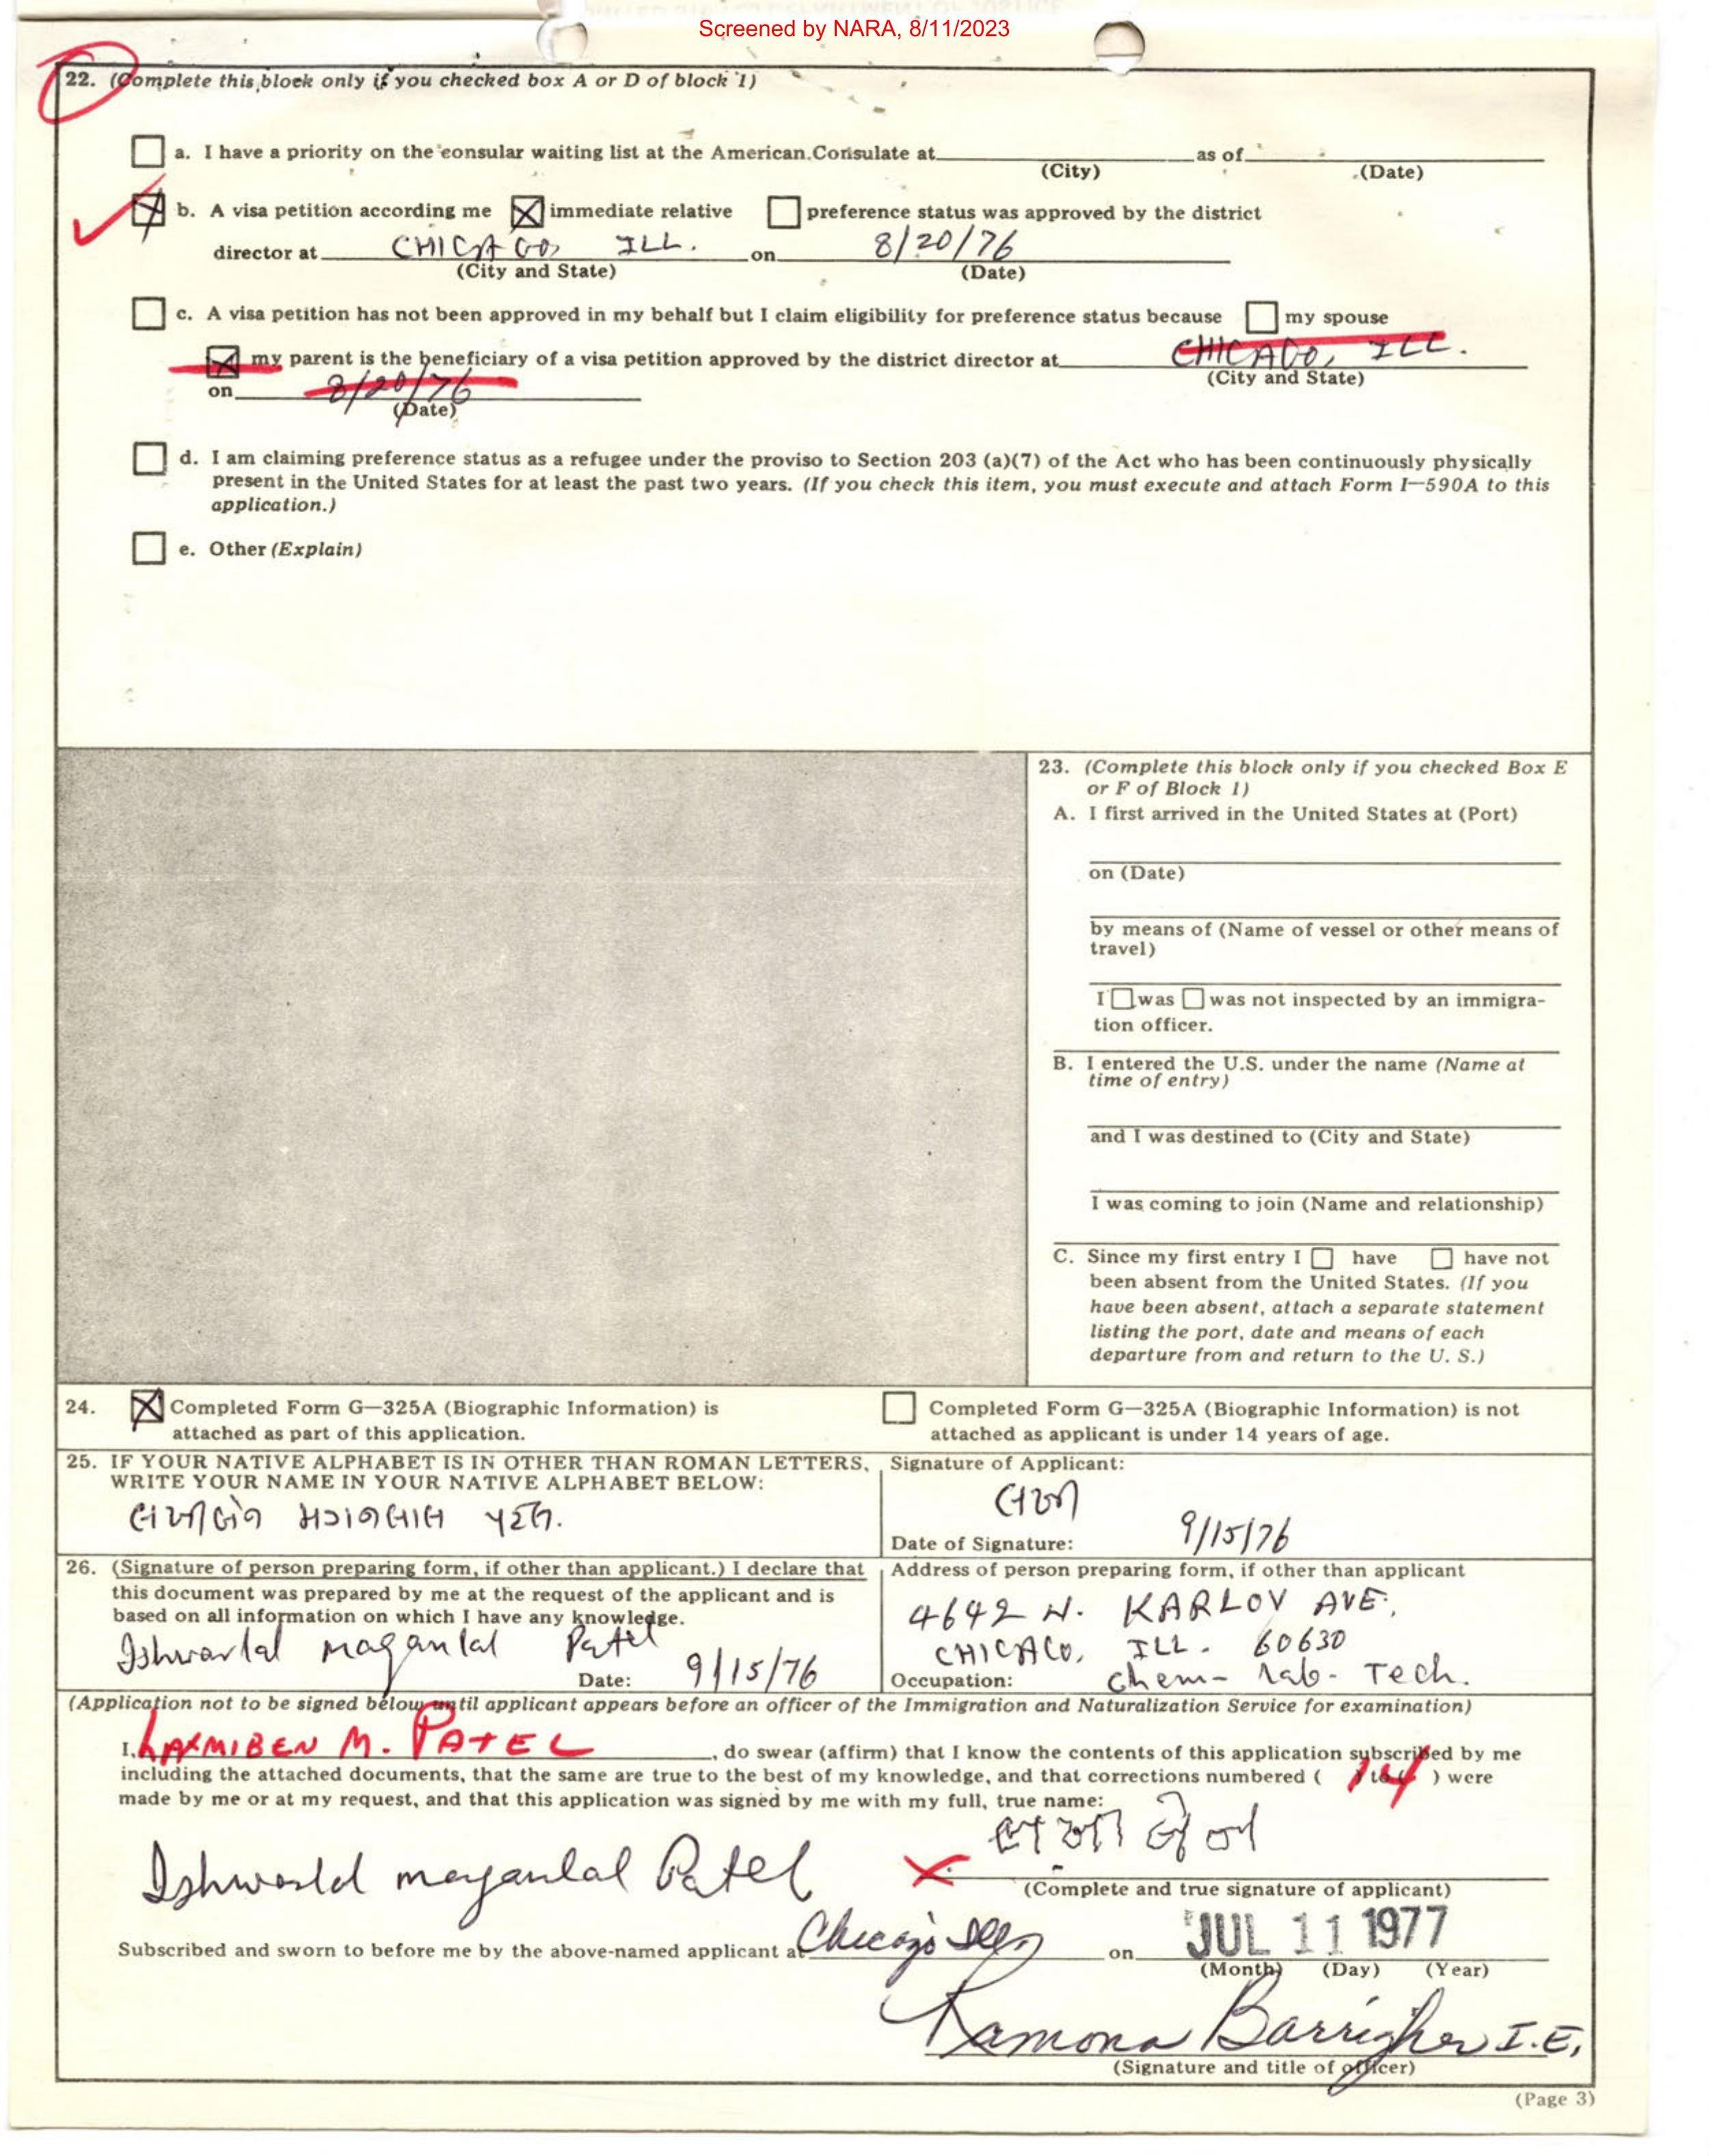 Screened by NARA, 8/11/2023
22. (Complete this block only if you checked box A or D of block 1)
a. I have a priority on the consular waiting list at the American Consulate at as of
(City) (Date)
b. A visa petition according me immediate relative preference status was approved by the district
director at CHICAGO, ILL. on 8/20/76
(City and State) (Date)
c. A visa petition has not been approved in my behalf but I claim eligibility for preference status because my spouse
my parent is the beneficiary of a visa petition approved by the district director at CHICAGO, ILL.
(City and State)
on 8/20/76
(Date)
d. I am claiming preference status as a refugee under the proviso to Section 203 (a)(7) of the Act who has been continuously physically
present in the United States for at least the past two years. (If you check this item, you must execute and attach Form I—590A to this
application.)
e. Other (Explain)
23. (Complete this block only if you checked Box E
or F of Block 1)
A. I first arrived in the United States at (Port)
on (Date)
by means of (Name of vessel or other means of
travel)
I was was not inspected by an immigra-
tion officer.
B. I entered the U.S. under the name (Name at
time of entry)
and I was destined to (City and State)
I was coming to join (Name and relationship)
C. Since my first entry I have have not
been absent from the United States. (If you
have been absent, attach a separate statement
listing the port, date and means of each
departure from and return to the U. S.)
24. Completed Form G—325A (Biographic Information) is
attached as part of this application.
Completed Form G—325A (Biographic Information) is not
attached as applicant is under 14 years of age.
25. IF YOUR NATIVE ALPHABET IS IN OTHER THAN ROMAN LETTERS,
WRITE YOUR NAME IN YOUR NATIVE ALPHABET BELOW:
મગનલાલ પટેલ.
Signature of Applicant:
Date of Signature: 9/15/76
26. (Signature of person preparing form, if other than applicant.) I declare that
this document was prepared by me at the request of the applicant and is
based on all information on which I have any knowledge.
Ishwarlal maganlal Patel
Date: 9/15/76
Address of person preparing form, if other than applicant
4642 N. KARLOV AVE.,
CHICAGO, ILL. 60630
Occupation: Chem- Lab- Tech.
(Application not to be signed below until applicant appears before an officer of the Immigration and Naturalization Service for examination)
I, LAXMIBEN M. PATEL, do swear (affirm) that I know the contents of this application subscribed by me
including the attached documents, that the same are true to the best of my knowledge, and that corrections numbered ( ) to ( ) were
made by me or at my request, and that this application was signed by me with my full, true name:
Ishwarlal maganlal Patel
(Complete and true signature of applicant)
Subscribed and sworn to before me by the above-named applicant at Chicago Ill on JUL 11 1977
(Month) (Day) (Year)
Ramona I.E.
(Signature and title of officer)
(Page 3)